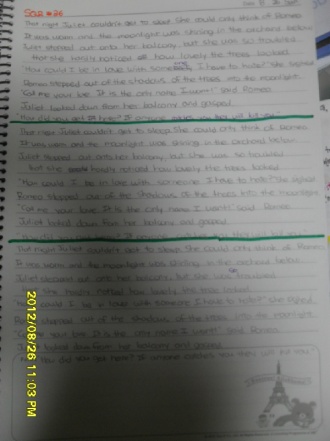 That night Juliet couldn't get to sleep. She could only think of Romeo
It was warm and the moonlight was shining in the orchard below
Juliet stepped out onto her balcony, but she was so troubled
that she hardly noticed how lovely the trees looked
"How could I be in love with someone I have to hate?" She sighed
Romeo stepped out of the shadows of the trees into the moonlight
"Call me your love. It is the only name I want!" Said Romeo
Juliet looked down from her balcony and gasped
"How did you get here? If anyone catches you they will kill you"
That night Juliet couldn't get to sleep. She could only think of Romeo
It was warm and the moonlight was shining in the orchard below
Juliet stepped out onto her balcony, but she was so troubled
that she hardly noticed how lovely the trees looked
"How could I be in love with someone I have to hate?" She sighed
Romeo stepped out of the shadows of the trees into the moonlight
"Call me your love. It is the only name I want!" Said Romeo
Juliet looked down from her balcony and gasped
That night Juliet couldn't get to sleep. She could only think of Romeo
It was warm and the moonlight was shining in the orchard below
Juliet stepped out onto her balcony, but she was so troubled
she hardly noticed how lovely the trees looked
could I be in love with someone I have to hate?" She sighed
stepped out of the shadows of the trees into the moonlight
your love. It is the only name I want!" Said Romeo
looked down from her balcony and gasped
How did you get here? If anyone catches you they will kill you"
2012/08/26 11:03 PM